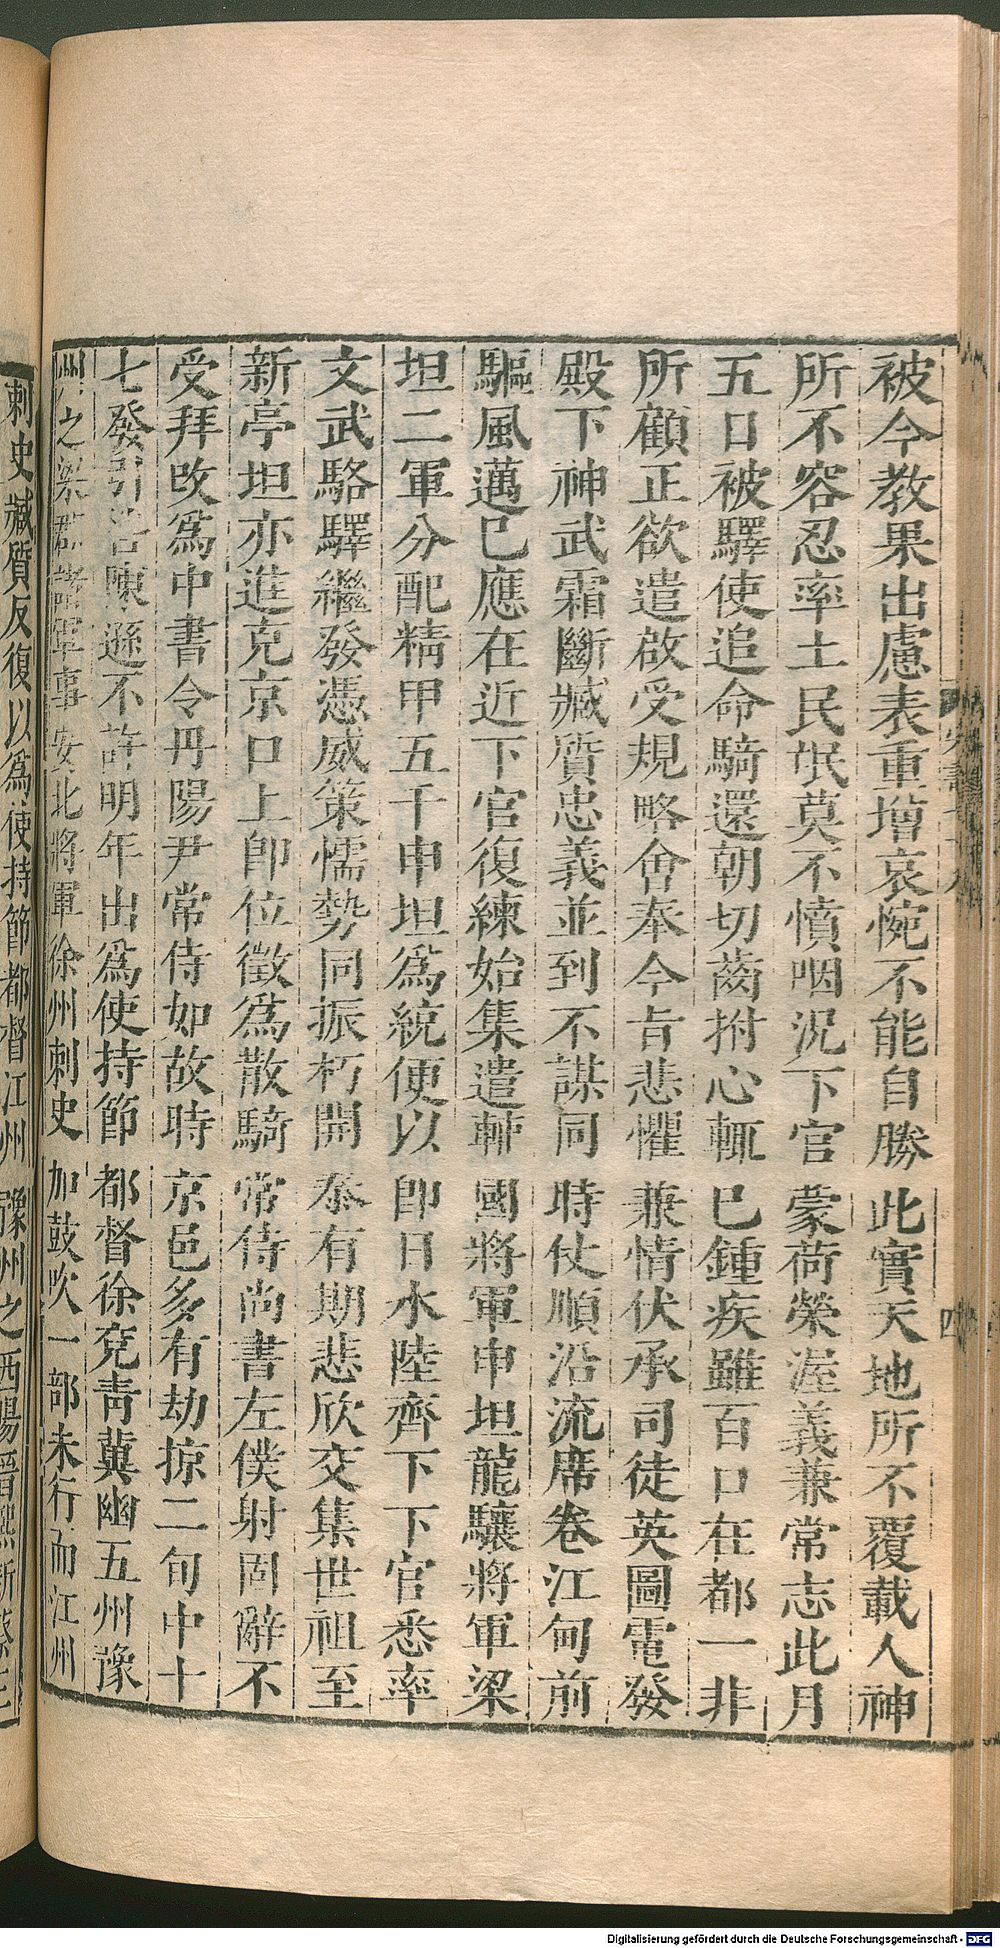 被今教果出慮表重增哀惋不能自勝此實天地所不覆載人神
所不容忍率土民氓莫不憤咽況下官蒙荷榮渥義兼常志此月
五日被驛使追命騎還朝切齒拊心輒已鍾疾雖百口在都一非
所顧正欲遣啟受規略會奉今旨悲懼兼情伏承司徒英圖電發
殿下神武霜斷臧質忠義並到不謀同時仗順沿流席卷江甸前
驅風邁已應在近下官復練始集遣輔國將軍申坦龍驤將軍梁
坦二軍分配精甲五千申坦爲統便以即日水陸齊下下官悉率
文武駱驛繼發憑威策懦勢同振朽開泰有期悲欣交集世祖至
新亭坦亦進克京口上即位徵爲散騎常侍尚書左僕射固辭不
受拜改爲中書令丹陽尹常侍如故時京邑多有劫掠二旬中十
七發引咎陳遜不許明年出爲使持節都督徐兗青冀幽五州豫
州之梁郡諸軍事安北將軍徐州刺史加鼓吹一部未行而江州
刺史臧質反復以爲使持節都督江州豫州之西陽晉熙新蔡三
四
Digitalisierung gefördert durch die Deutsche Forschungsgemeinschaft - DFG